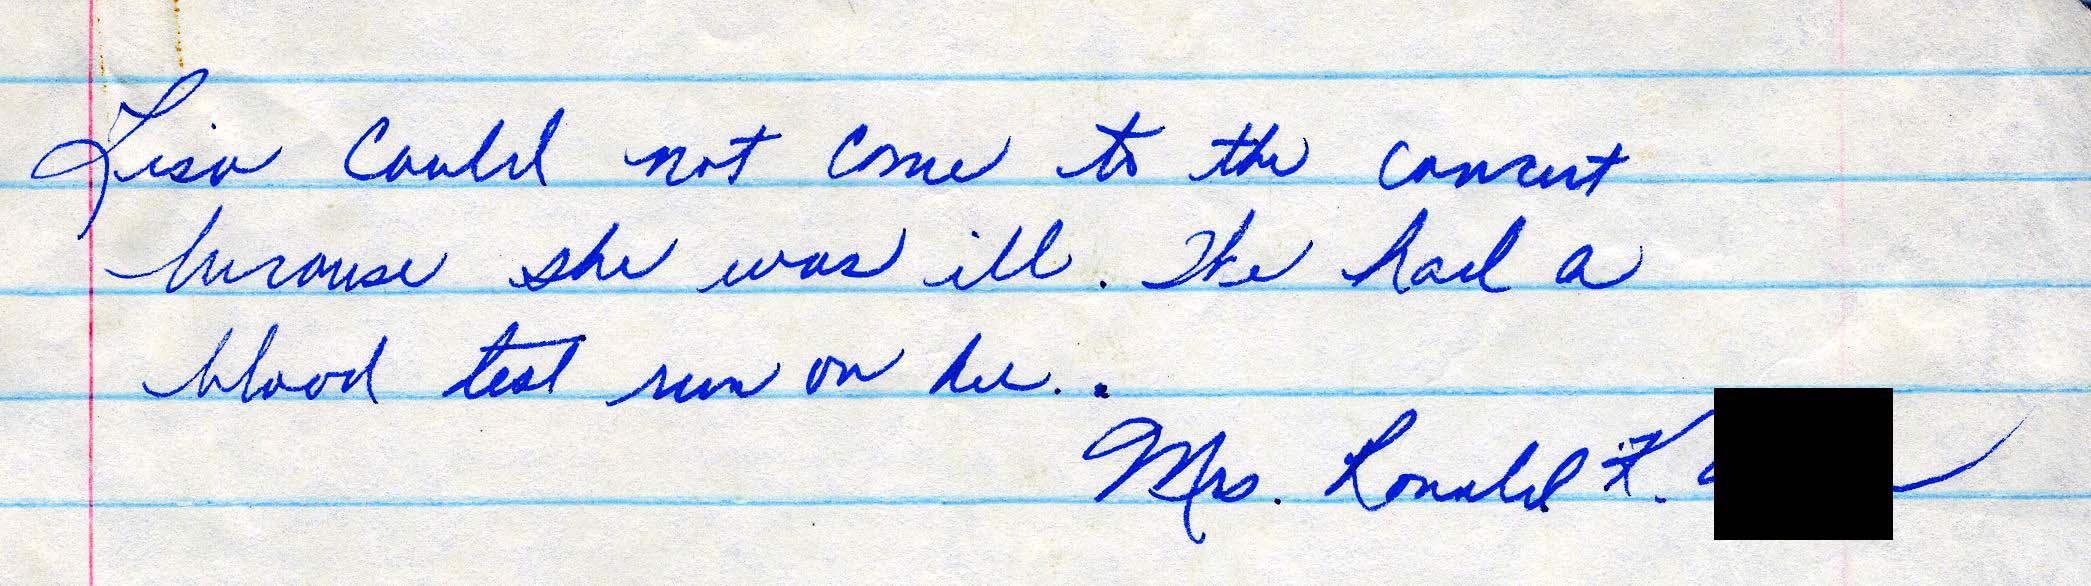 Lisa could not come to the concert
because she was ill. The had a
blood test run on her..
Mrs. Ronald K.